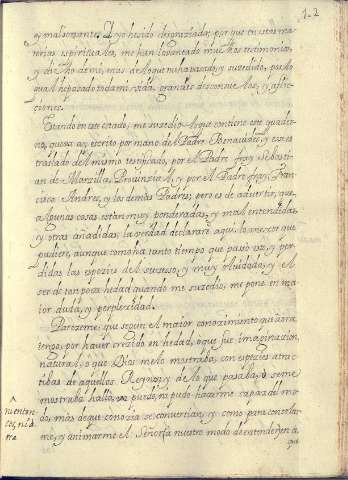 1-2
y mal seguras. Y yo he sido desgraciada, por que en estas ma
terias espirituales, me han levantado muchos testimonios,
y dicho de mi, mas de lo que me ha pasado, y suzedido, por lo
qual he pasado toda mi vida grandes desconsuelos, y aflic
ciones.
Estando en este estado, me suzedio lo que contiene este quader
no, que esta aqui, escrito por mano del Padre Benavides, y esto es
traslado del mismo testificado, por el Padre fray Sebasti
an de Marzilla, Provinzial, y por el Padre fray Fran
cisco Andres, y los demas Padres; pero es de advertir, que
algunas cosas estan muy ponderadas, y mal entendidas,
y otras añadidas, la verdad declarare aqui, lo mejor que
pudiere, aunque como ha tanto tiempo que paso esto, y per
didas las espezies del suzesso, y muy olvidado, y el
ser de tan poca hedad quando me suzedio, me pone en ma
ior duda, y perplexidad.
Pareze me que segun el maior conocimiento que aora
tengo, por haver crezido en hedad, o que fue imaginasion
natural, o que Dios me lo mostraba, con espezies abstrac
tibas de aquellos Reynos, y de lo que pasaba, o se me
mostraba hallo, no puede, ni pudo hazerme capaz del mo
do, mas de que conozia se convertian, y como para consolar
me, y animarme el Señor
a nuestro modo de entender en a
A